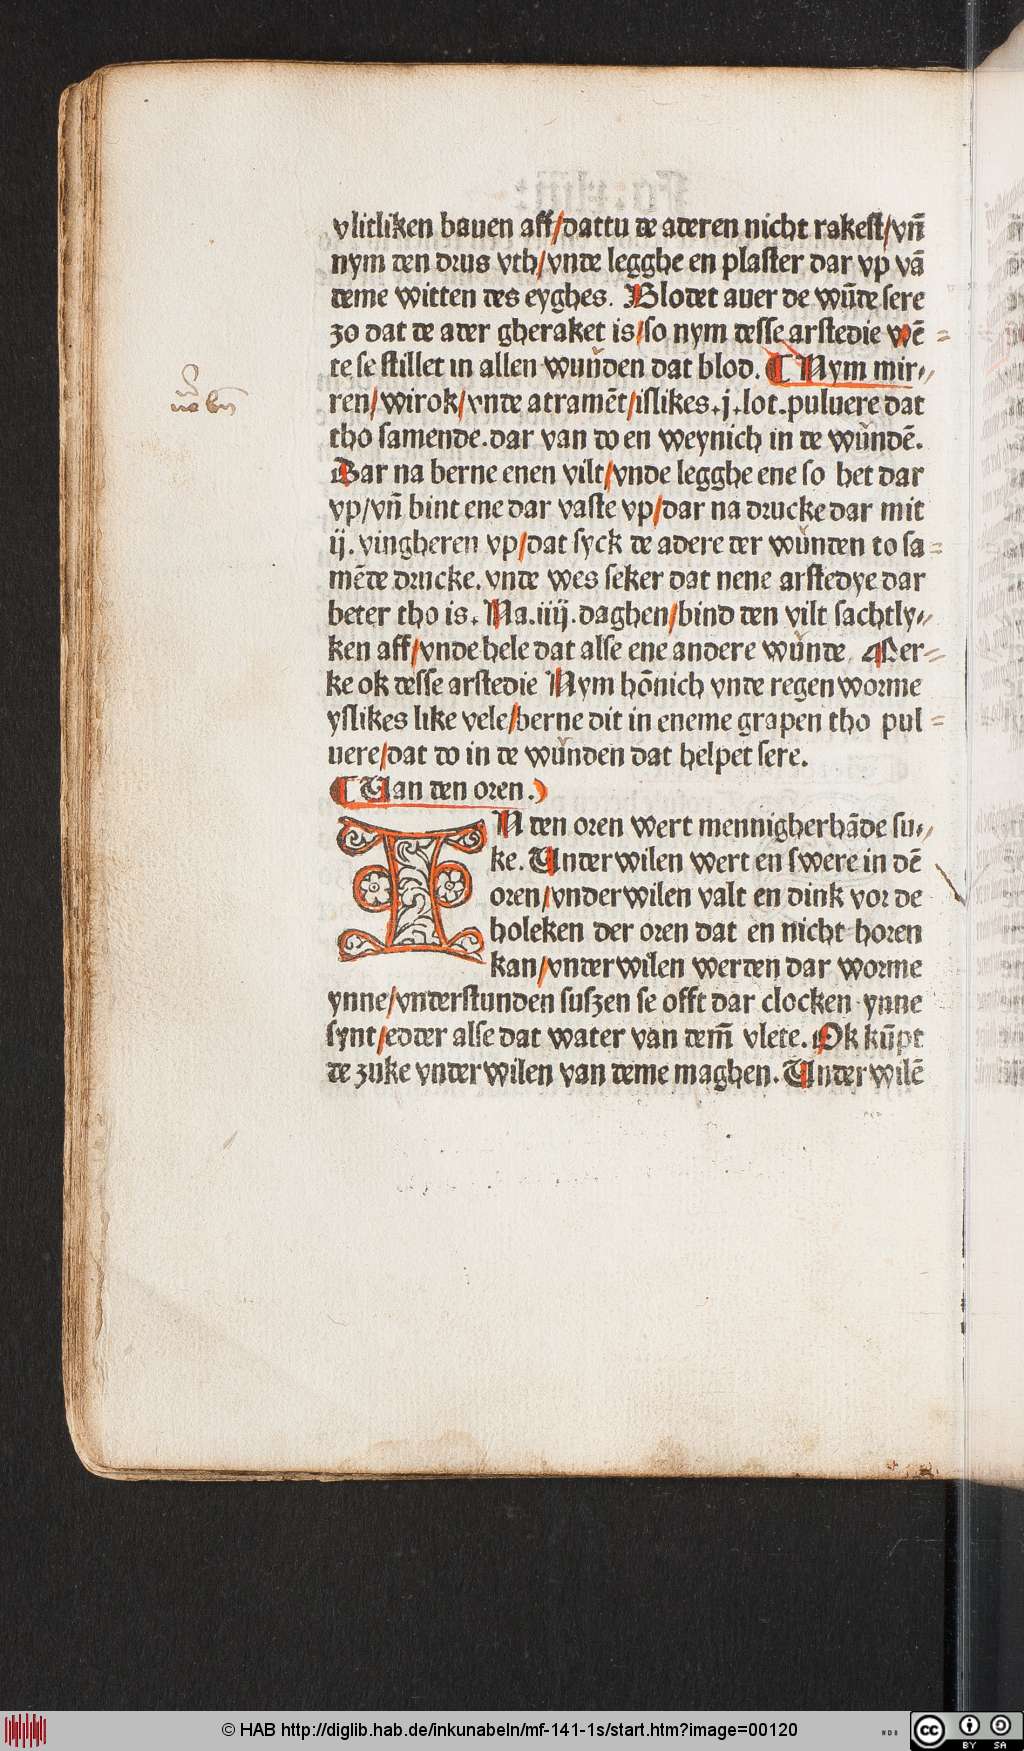 vlitliken bauen aff/dattu de aderen nicht rakest/vn̄
nym den drus vth/vnde legghe en plaster dar vp vā
deme witten des eyghes. Blodet auer de wūde sere
zo dat de ader gheraket is/so nym desse arstedie wē=
te se stillet in allen wunden dat blod. ¶ Nym mir⸗
ren/wirok/vnde atramēt/islikes.j.lot.puluere dat
tho samende.dar van do en weynich in de wundē.
Dar na berne enen vilt/vnde legghe ene so het dar
vp/vn̄ bint ene dar vaste vp/dar na drucke dar mit
ij. vingheren vp/dat syck de adere der wunden to sa=
mēde drucke. vnde wes seker dat nene arstedye dar
beter tho is. Na.iiij.daghen/bind den vilt sachtly⸗
ken aff/vnde hele dat alse ene andere wunde. Mer=
ke ok desse arstedie Nym hōnich vnde regen worme
yslikes like vele/berne dit in eneme grapen tho pul=
uere/dat do in de wunden dat helpet sere.
¶ Van den oren.
IN den oren wert mennigherhāde su⸗
ke. Underwilen wert en swere in dē
oren/vnderwilen valt en dink vor de
holeken der oren dat en nicht horen
kan/vnderwilen werden dar worme
ynne/vnderstunden suszen se offt dar clocken ynne
synt/edder alse dat water van dem̄ vlete. Ok kūpt
de zuke vnderwilen van deme maghen. Underwilē
© HAB http://diglib.hab.de/inkunabeln/mf-141-1s/start.htm?image=00120
WDB
cc BY SA